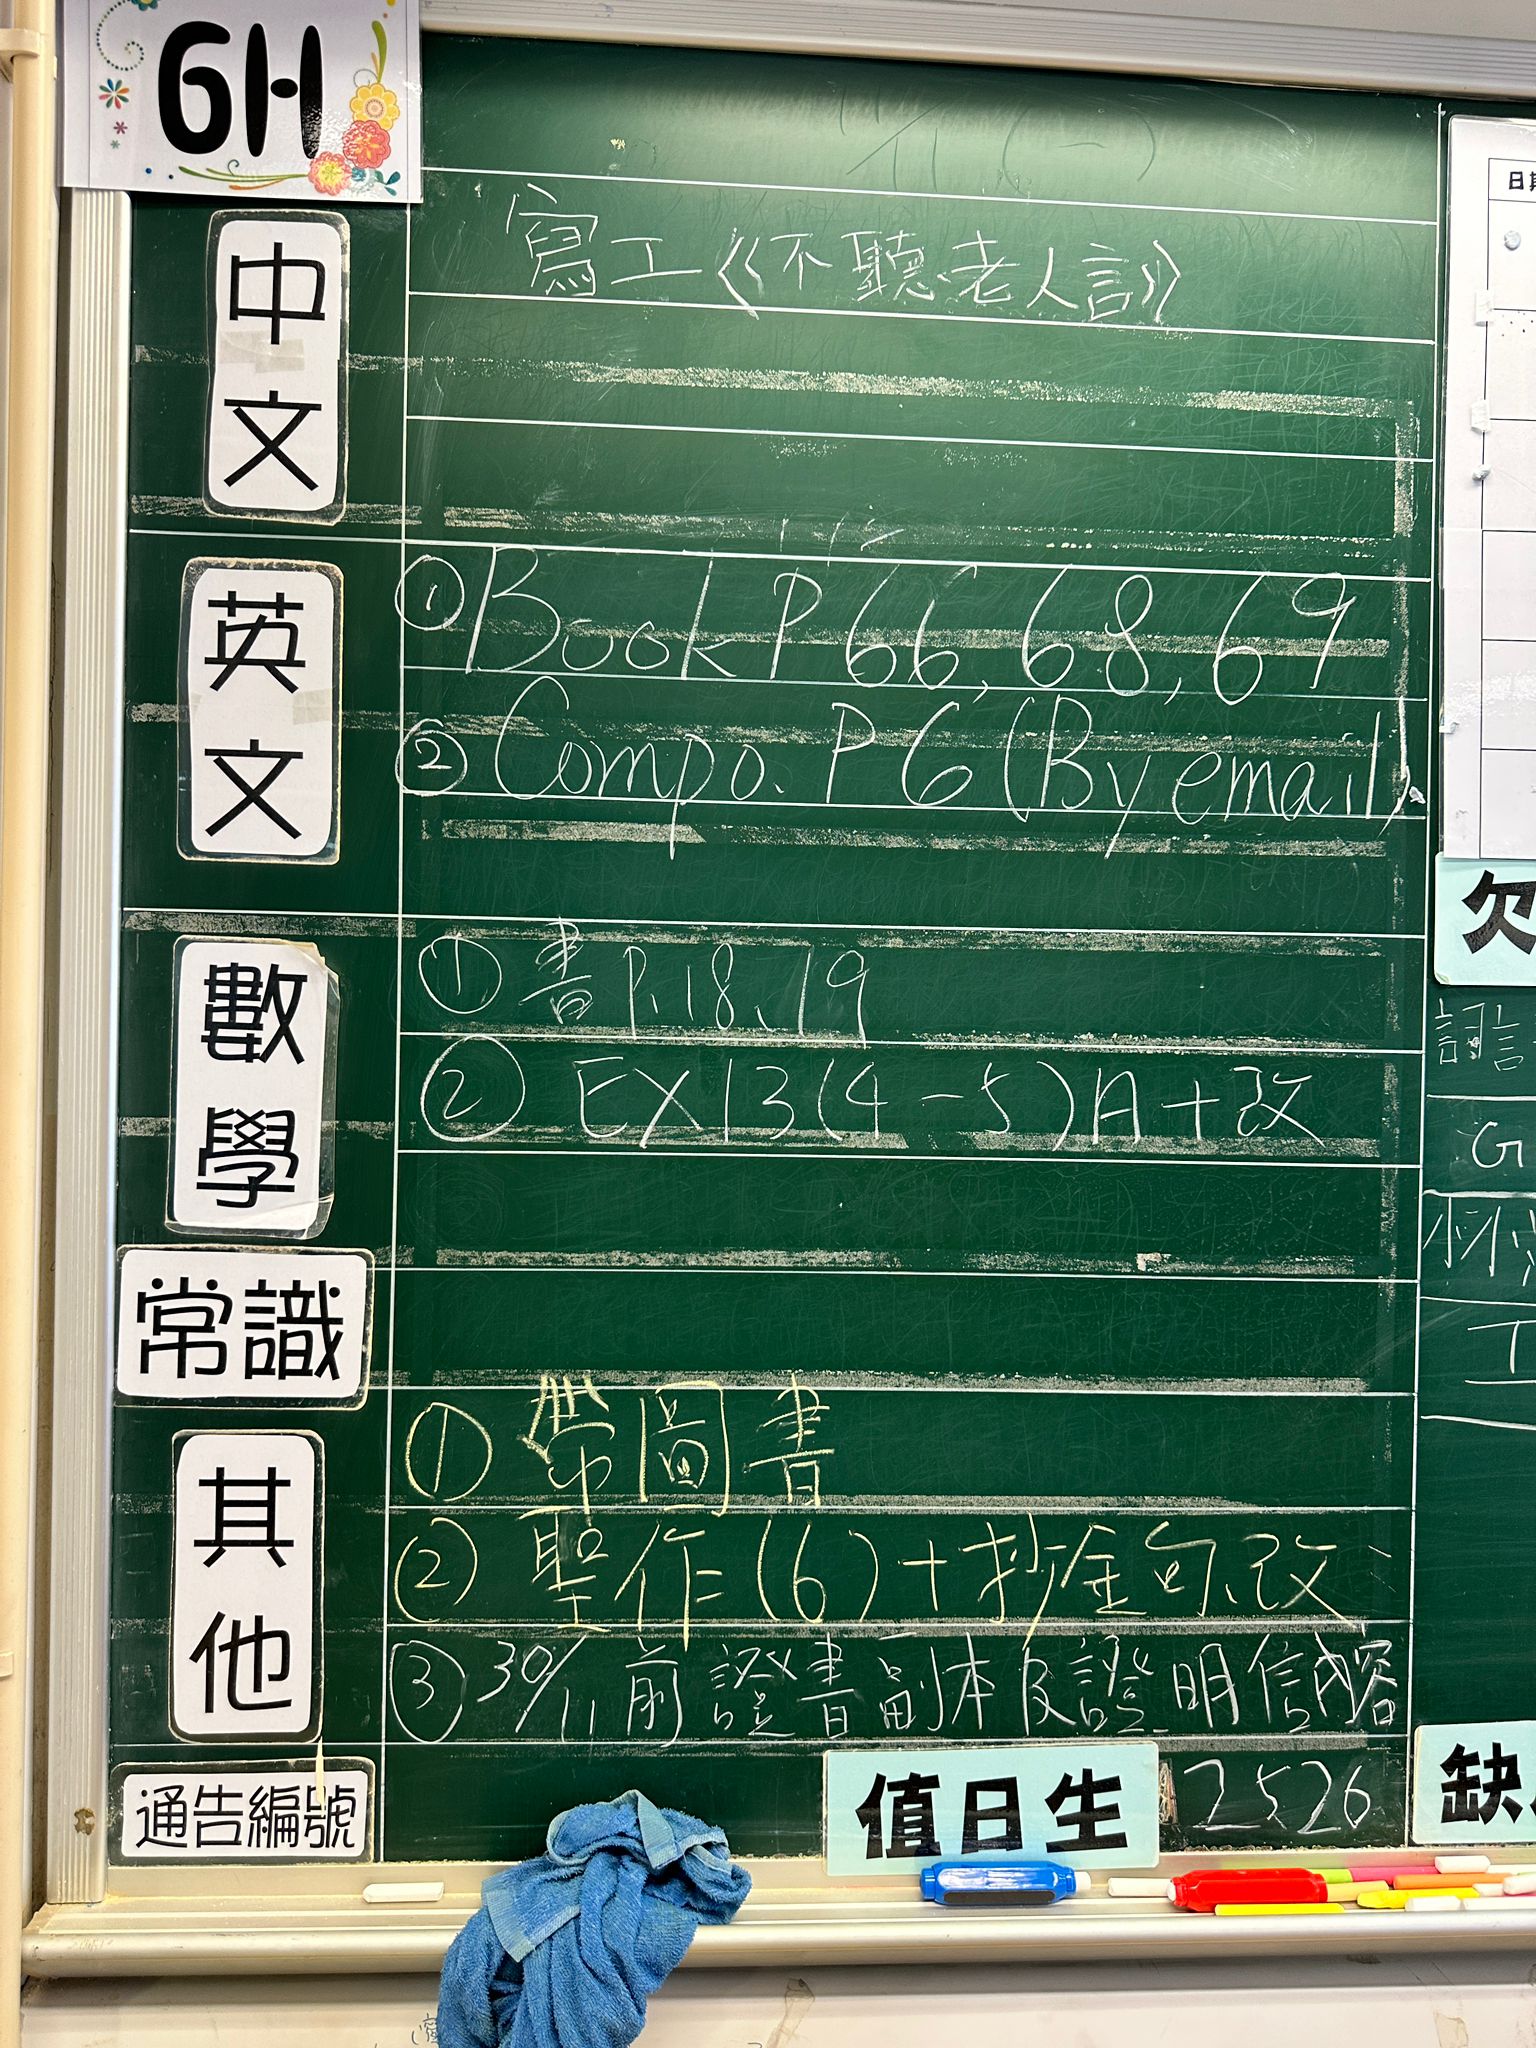 6H
中文
寫工《不聽老人言》
英文
①Book P 66, 68, 69
② Compo. P 6 (By email)
數學
① 書 P.18、19
② EX 13 (4-5) A + 改
常識
其他
① 帶圖書
② 聖作 (6) + 抄金句、改
③ 30/11 前 證書副本及證明信
通告編號
值日生 25 26
日
欠
G
工
缺